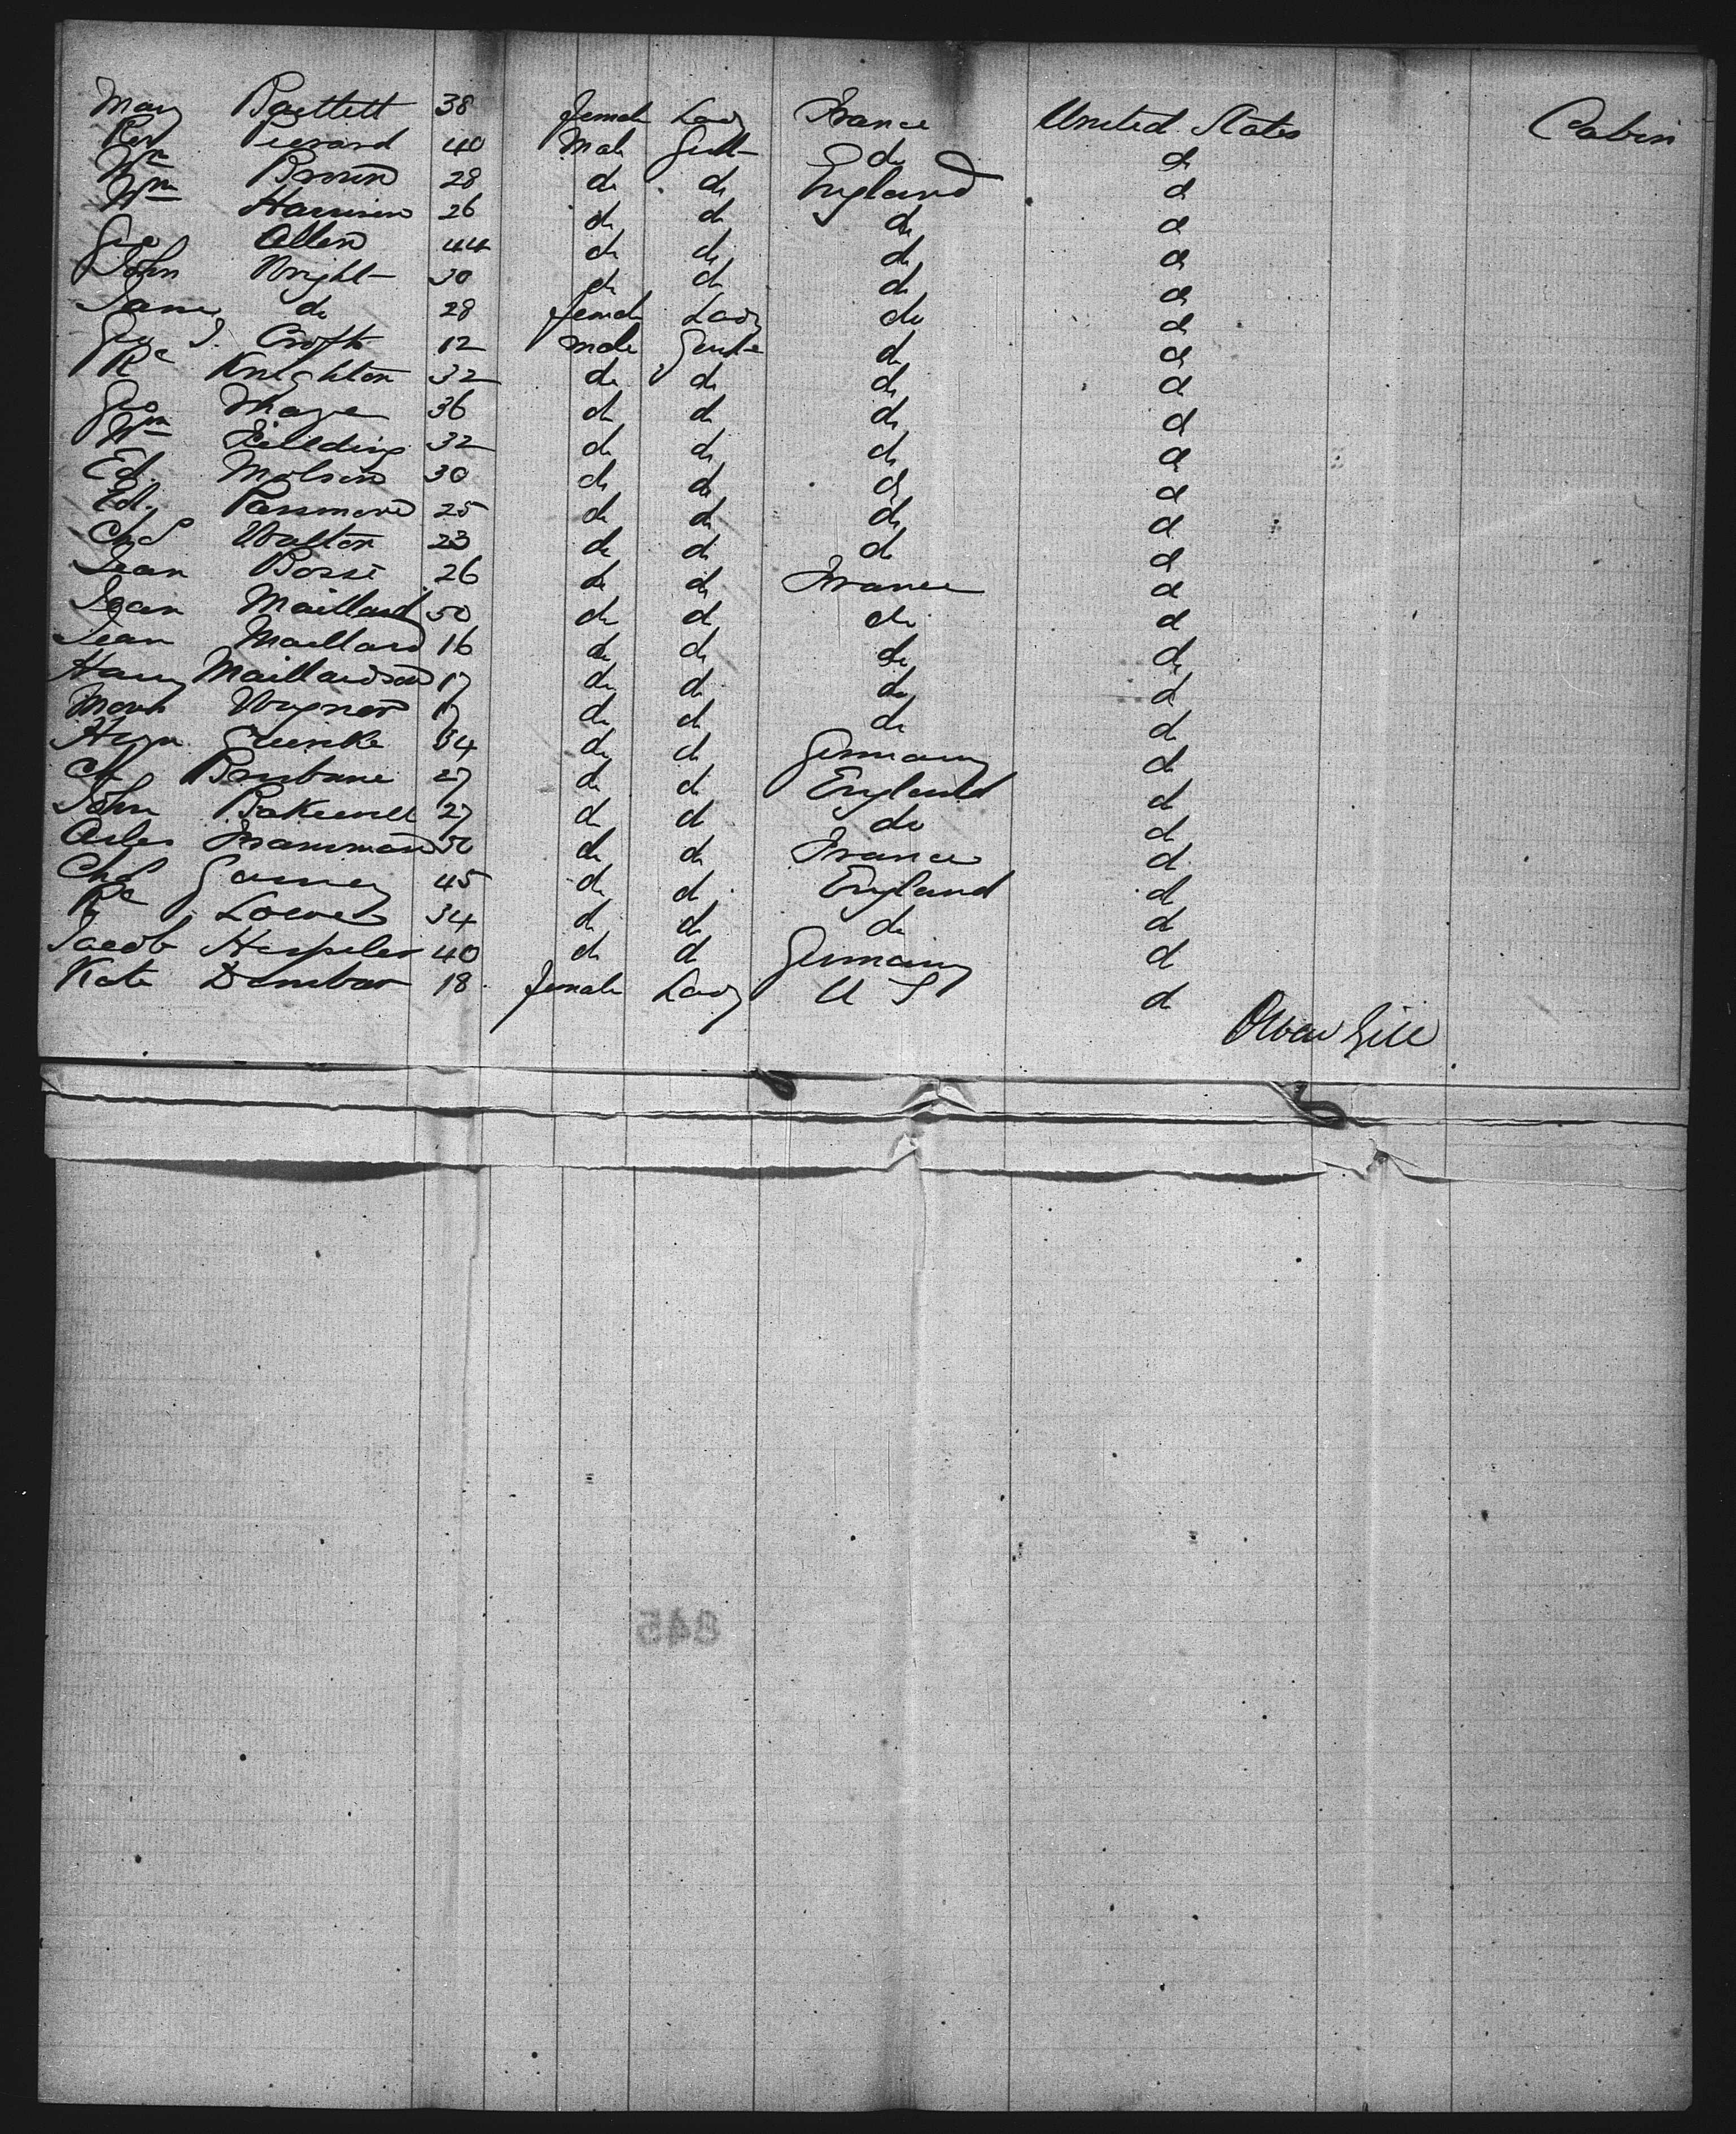 Mary Bartlett 38 female Lady France United States Cabin
Pierrard 40 Male Gentl do do
Wm Brown 28 do do England do
Wm Harrison 26 do do do do
Geo Allen 44 do do do do
John Wright 30 do do do do
do 28 female Lady do do
Geo J. Croft 12 male Gentle do do
Rd Knighton 32 do do do do
Geo 36 do do do do
Wm Feilding 32 do do do do
Ed. Molson 30 do do do do
Ed. Passmore 25 do do do do
Chs Walton 23 do do do do
Jean Bossé 26 do do France do
Jean Maillard 50 do do do do
Jean Maillard 16 do do do do
Harry 17 do do do do
Wagner 17 do do do do
do do Germany do
Ch Brisbane 27 do do England do
John Bakewell 27 do do do do
50 do do France do
Chs Gurney 45 do do England do
Rd 34 do do do do
Jacob Hespeler 40 do do Germany do
Kate Dunbar 18 female Lady U S do
Owen Gill
845